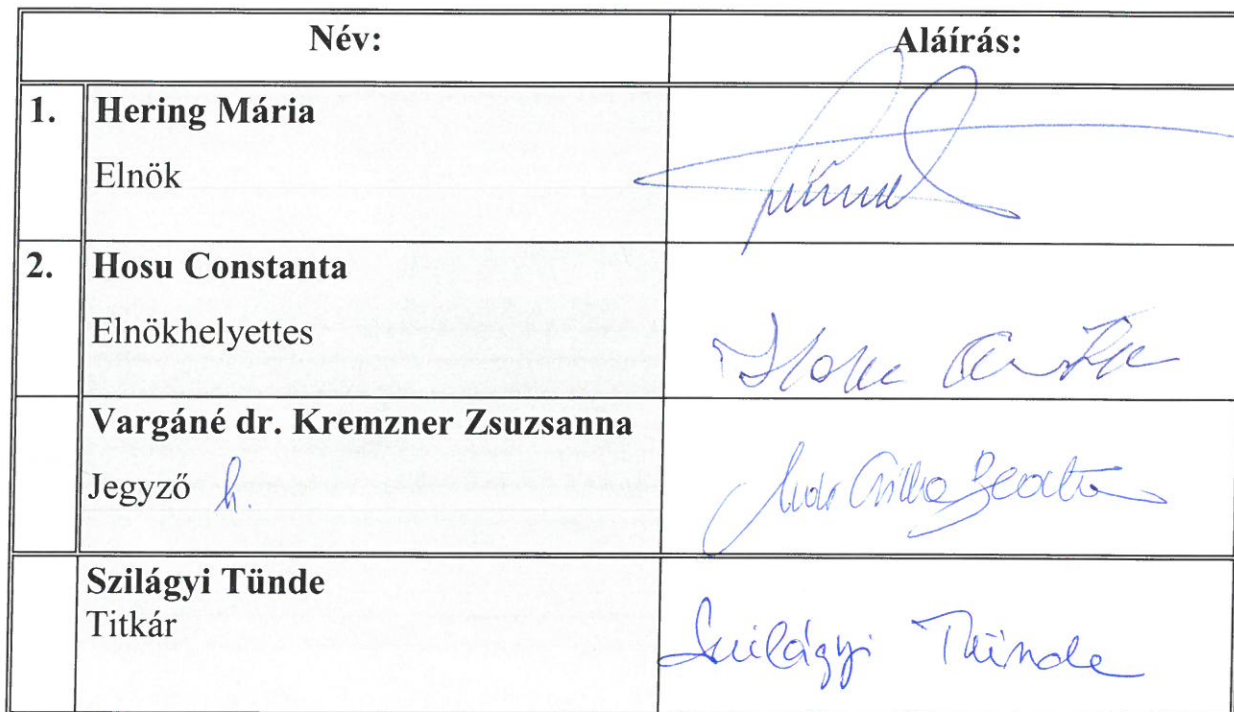 Név: Aláírás:
1. Hering Mária
Elnök
2. Hosu Constanta
Elnökhelyettes
Hosu
Vargáné dr. Kremzner Zsuzsanna
Jegyző h.
Csilla Beáta
Szilágyi Tünde
Titkár
Szilágyi Tünde